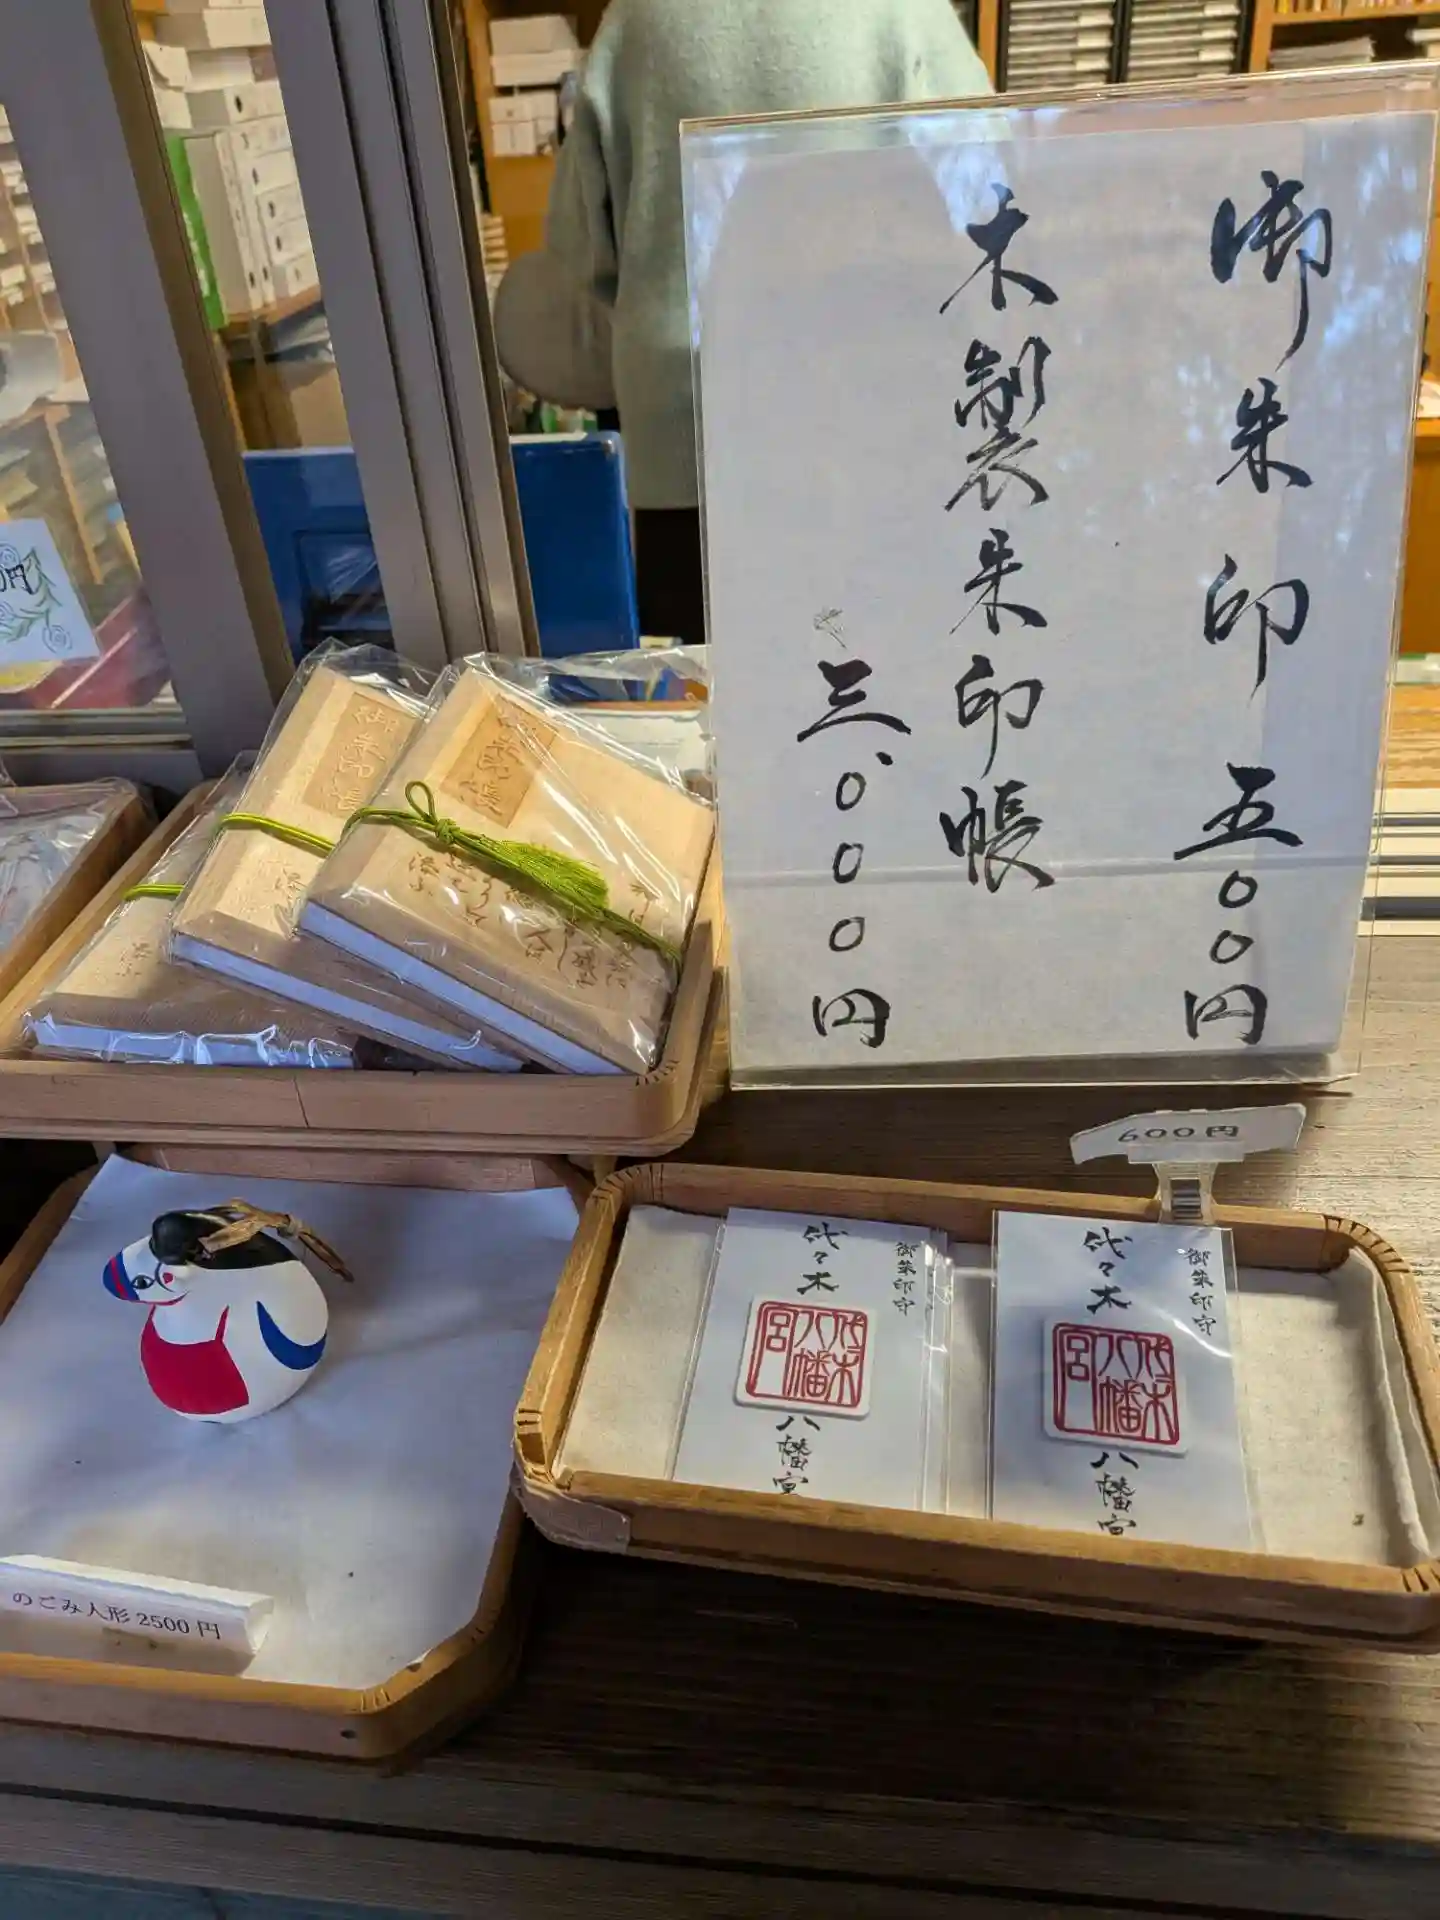 御朱印 五〇〇円
木製朱印帳
三、〇〇〇円
円
御朱印帳
御朱印帳
600円
御朱印守
代々木
代々木八幡宮
八幡宮
御朱印守
代々木
代々木八幡宮
八幡宮
のごみ人形 2500円